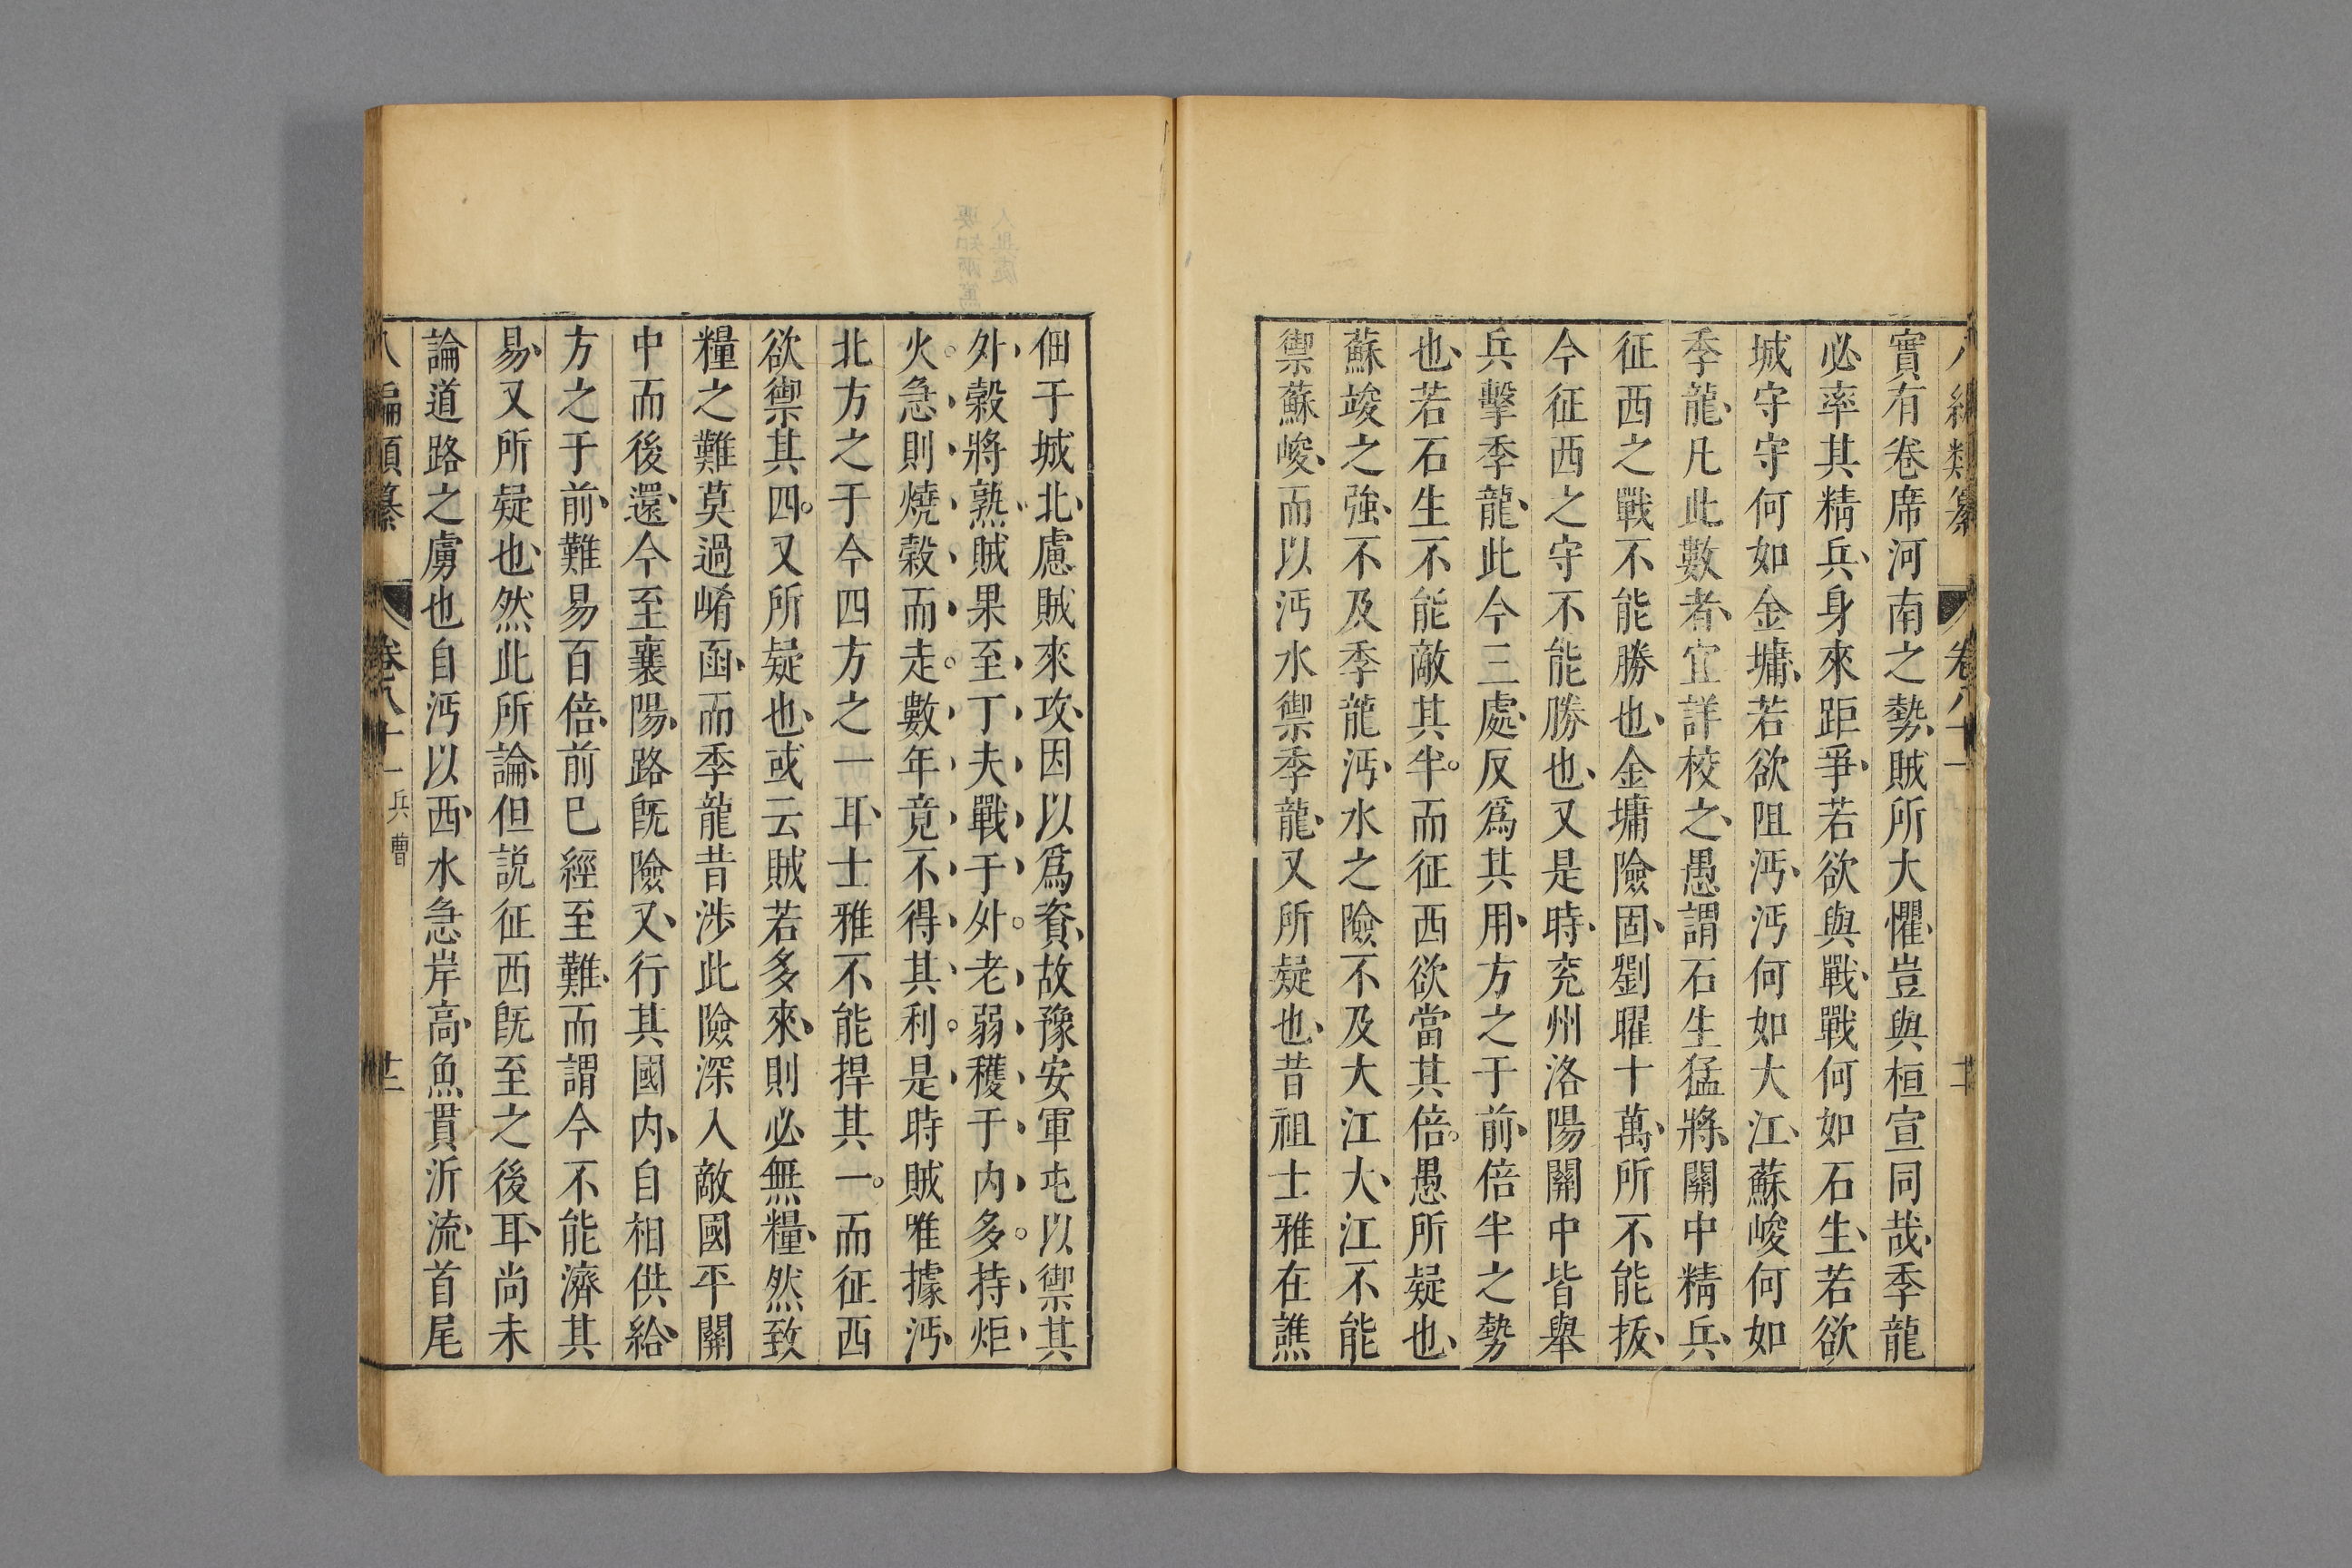 八編類纂 卷八十一
實有卷席河南之勢賊所大懼豈與桓宣同哉季龍
必率其精兵身來距爭若欲與戰戰何如石生若欲
城守守何如金墉若欲阻沔沔何如大江蘇峻何如
季龍凡此數者宜詳校之愚謂石生猛將關中精兵
征西之戰不能勝也金墉險固劉曜十萬所不能拔
今征西之守不能勝也又是時兖州洛陽關中皆舉
兵擊季龍此今三處反爲其用方之于前倍半之勢
也若石生不能敵其半。而征西欲當其倍。愚所疑也
蘇竣之強不及季龍沔水之險不及大江大江不能
禦蘇峻而以沔水禦季龍又所疑也昔祖士雅在譙
佃于城北慮賊來攻因以爲資故豫安軍屯以禦其
外穀將熟賊果至丁夫戰于外。老弱穫于內多。持炬
火。急則燒穀而走。數年竟不得其利。是時賊唯據沔
北方之于今四方之一耳士雅不能捍其一。而征西
欲禦其四。又所疑也或云賊若多來則必無糧然致
糧之難莫過崤函而季龍昔涉此險深入敵國平關
中而後還今至襄陽路旣險又行其國內自相供給
方之于前難易百倍前巳經至難而謂今不能濟其
易又所疑也然此所論但説征西旣至之後耳尚未
論道路之虜也自沔以西水急岸高魚貫泝流首尾
八編類纂 卷八十一 兵曹 廿二